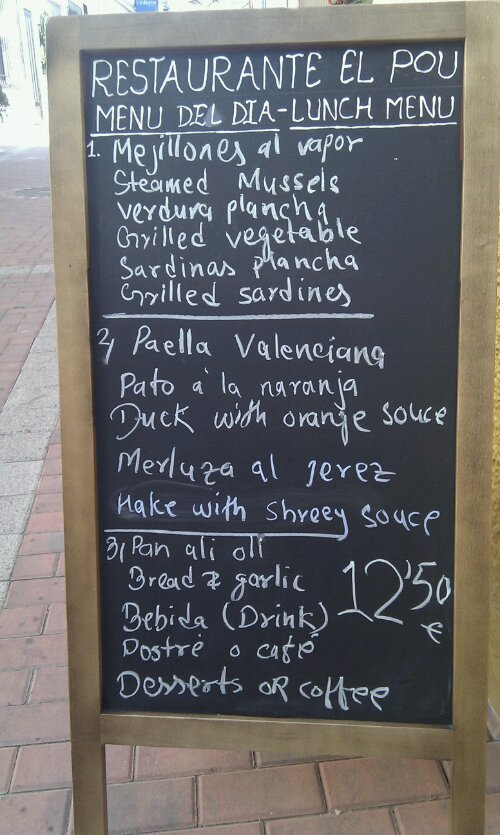 RESTAURANTE EL POU
MENU DEL DIA-LUNCH MENU
1. Mejillones al vapor
Steamed Mussels
verdura plancha
Grilled vegetable
Sardinas plancha
Grilled sardines
2) Paella Valenciana
Pato a la naranja
Duck with oranje souce
Merluza al jerez
Hake with shreey souce
3) Pan ali oli
Bread & garlic
12'50
Bebida (Drink)
€
Postre o café
Desserts OR coffee